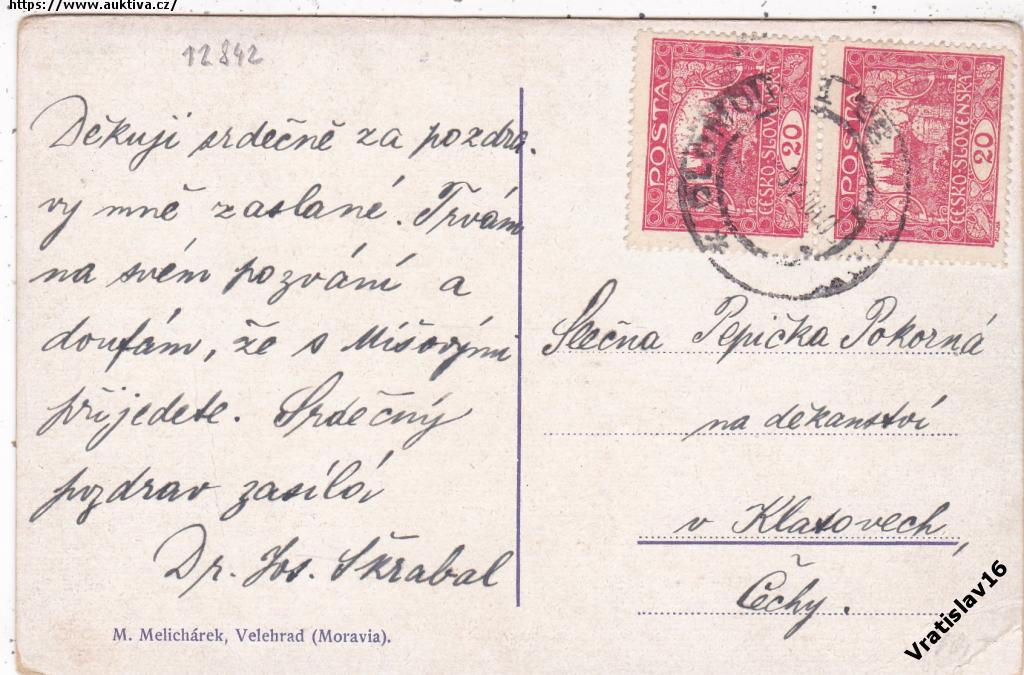 https://www.auktiva.cz/
12842
Děkuji srdečně za pozdra-
vy mně zaslané. Trvám
na svém pozvání a
doufám, že s Míšovými
přijedete. Srdečný
pozdrav zasílá
Dr. Jos. Škrabal
M. Melichárek, Velehrad (Moravia).
POSTA
ČESKO-SLOVENSKÁ
20
POSTA
ČESKO-SLOVENSKÁ
20
Slečna Pepička Pokorná
na děkanství
v Klatovech,
Čechy.
Vratislav16